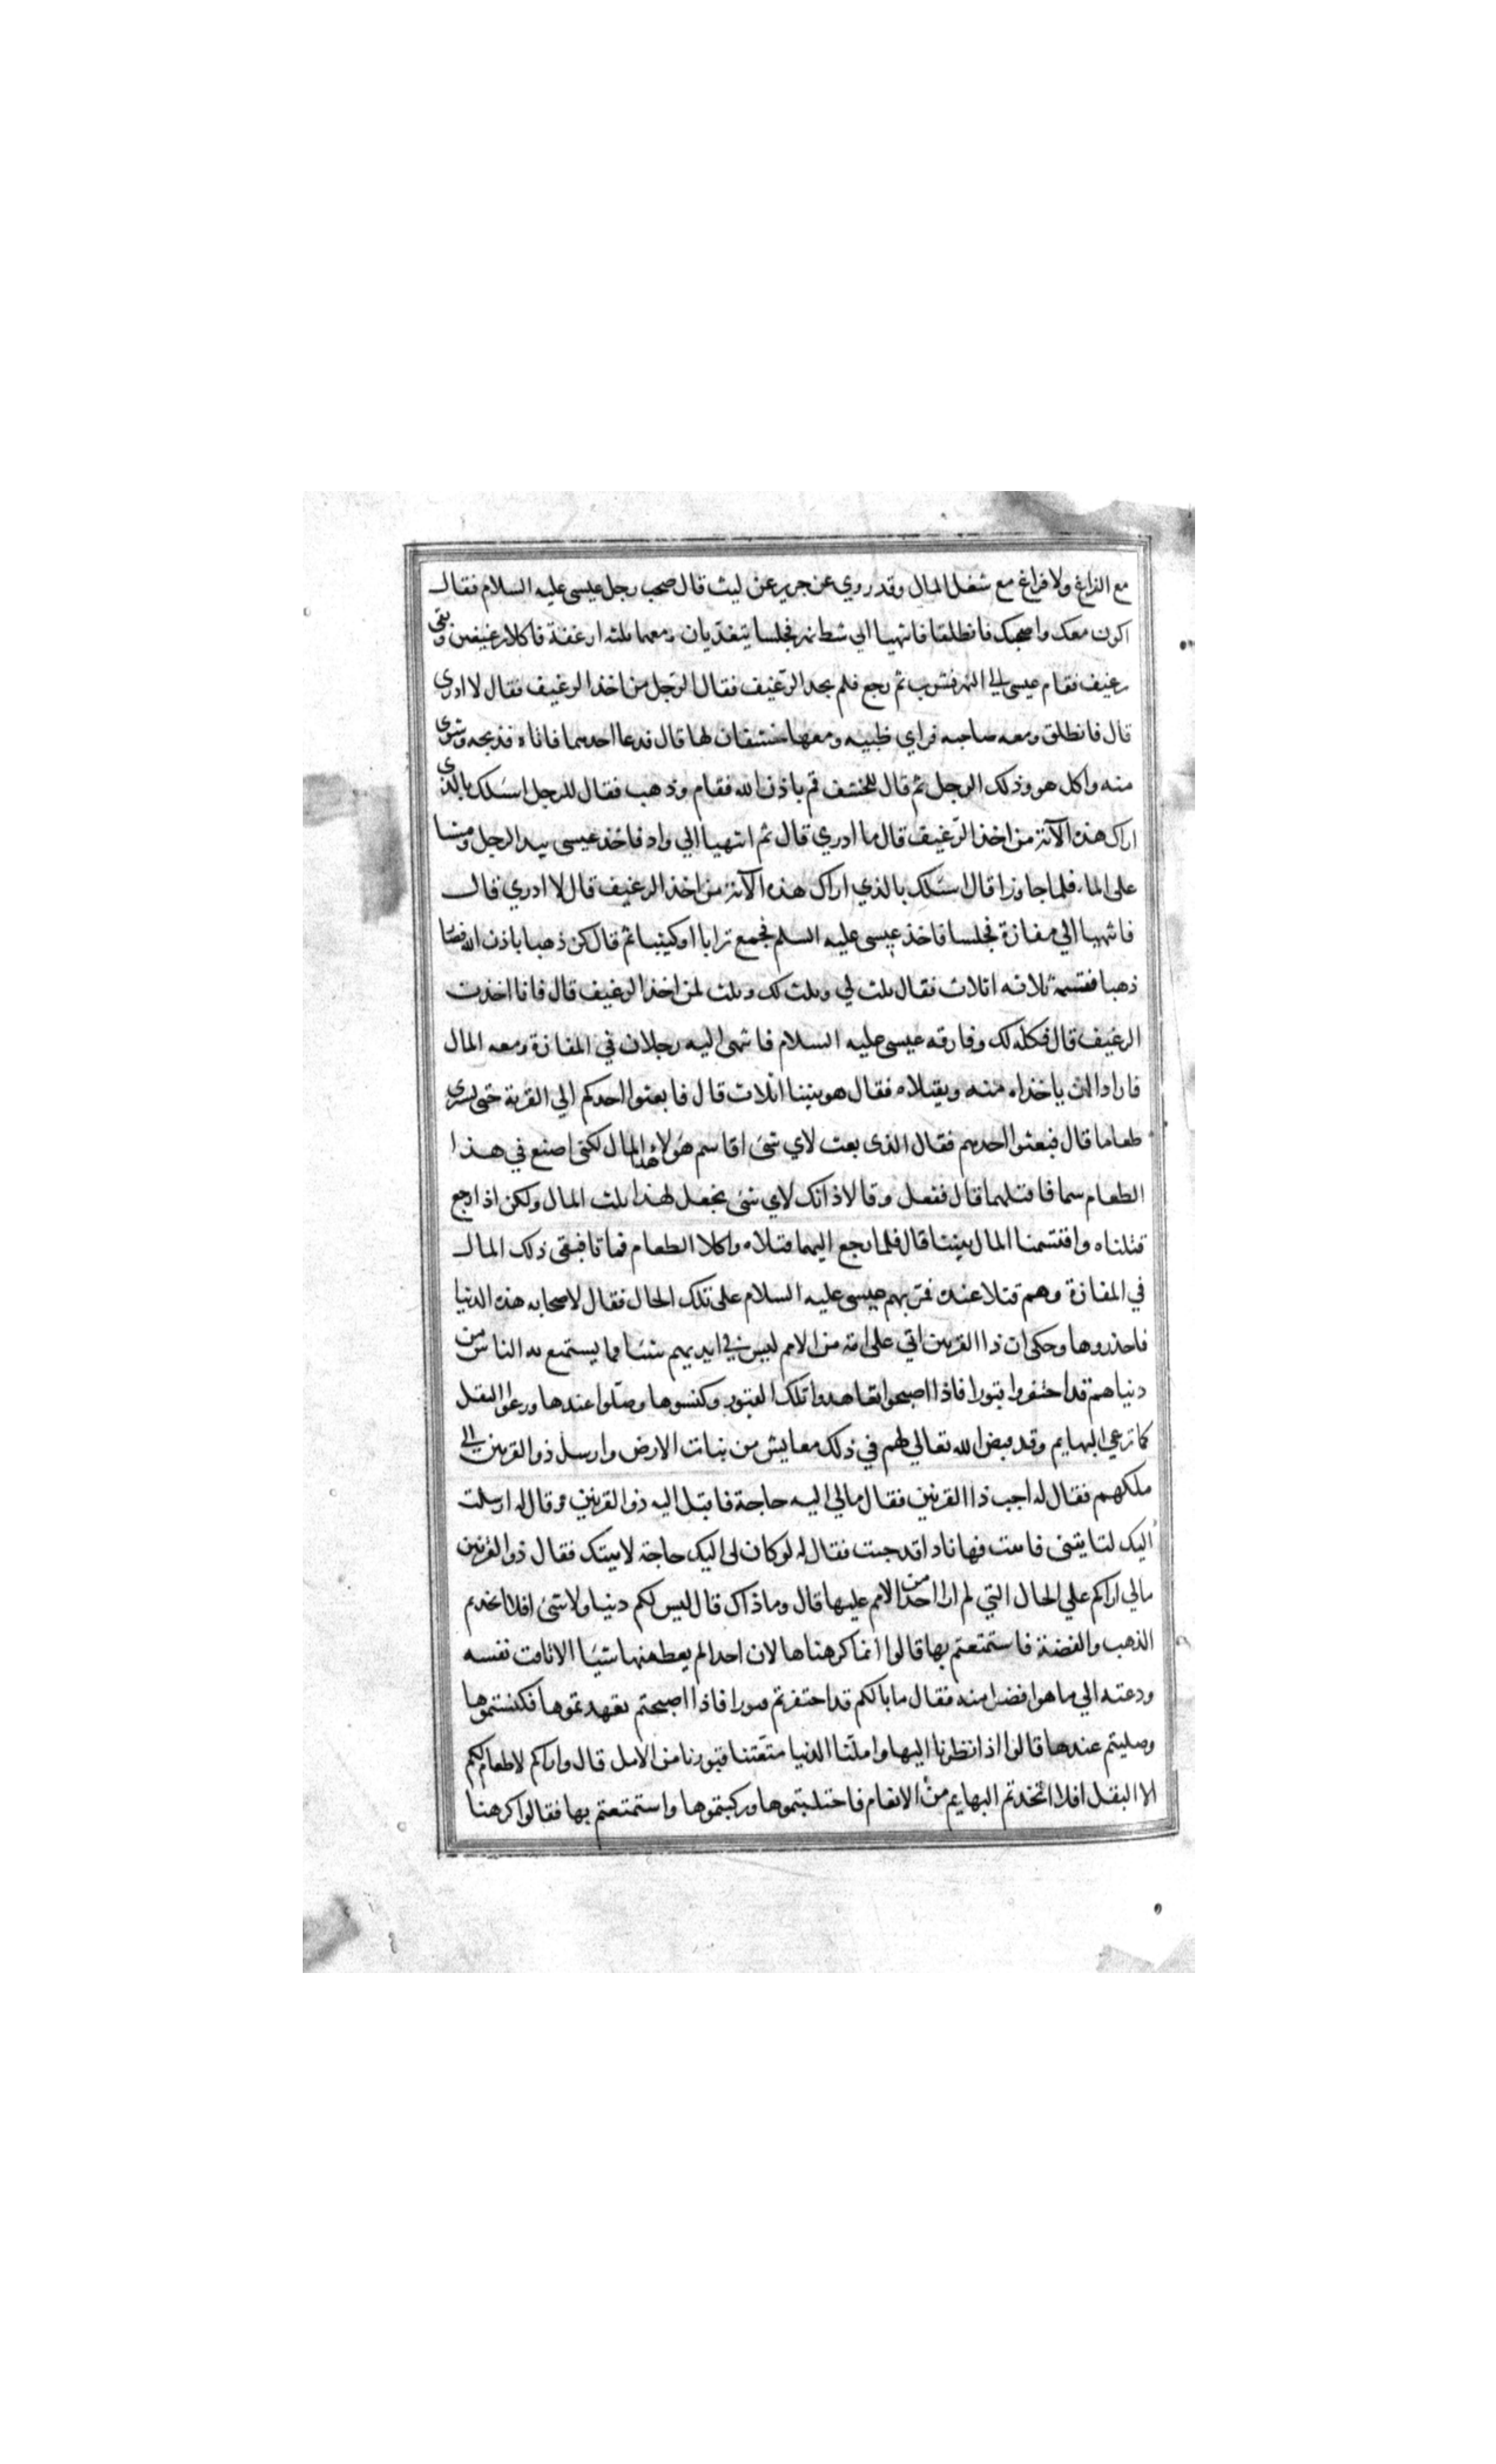 مع الفراغ ولا فراغ مع شغل المال وقد روي عن جرير عن ليث قال صحب رجل عيسى عليه السلام فقال
اكون معك واصحبك فانطلقا فانتهيا الي شط نهر فجلسا يتغديان ومعهما ثلثه ارغفة فاكلا رغيفين وبقى
رغيف فقام عيسى الى النهر فشرب ثم رجع فلم يجد الرغيف فقال للرجل من اخذ الرغيف فقال لا ادرى
قال فانطلق ومعه صاحبه فراي ظبيه ومعها خشفان لها قال فدعا احدهما فاتاه فذبحه وشوى
منه واكل هو وذلك الرجل ثم قال للخشف قم باذن الله فقام وذهب فقال للرجل اسئلك بالذى
اراك هذه الآية من اخذ الرغيف قال ما ادري قال ثم انتهيا الي واد فاخذ عيسى بيد الرجل ومشيا
على الماء فلما جاوزا قال اسئلك بالذي اراك هذه الآية من اخذ الرغيف قال لا ادري قال
فانتهيا الي مفازة فجلسا فاخذ عيسى عليه السلم فجمع ترابا او كثيبا ثم قال كن ذهبا باذن الله فصار
ذهبا فقسمه ثلاثه اثلاث فقال ثلث لي وثلث لك وثلث لمن اخذ الرغيف قال فانا اخذت
الرغيف قال فكله لك وفارقه عيسى عليه السلام فانتهى اليه رجلان في المفازة ومعه المال
فارادا ان ياخذاه منه ويقتلاه فقال هو بيننا اثلاث قال فابعثوا احدكم الي القرية حتى يشترى
طعاما قال فبعثوا احدهم فقال الذى بعث لاي شئ اقاسم هولاء هذا المال لكنى اصنع في هذا
الطعام سما فاقتلهما قال ففعل وقالا ذانك لاي شئ نجعل لهذا ثلث المال ولكن اذا رجع
قتلناه واقتسمنا المال بيننا قال فلما رجع اليهما قتلاه واكلا الطعام فماتا فبقى ذلك المال
في المفازة وهم قتلا عنده فمر بهم عيسى عليه السلام على تلك الحال فقال لاصحابه هذه الدنيا
فاحذروها وحكى ان ذا القرنين اتي على امة من الامم ليس في ايديهم شئا مما يستمتع به الناس من
دنياهم قد احتفروا قبورا فاذا اصبحوا تعاهدوا تلك القبور وكنسوها وصلوا عندها ورعوا البقل
كما ترعي البهايم وقد قيض الله تعالي لهم في ذلك معايش من نبات الارض وارسل ذو القرنين الى
ملكهم فقال له اجب ذا القرنين فقال مالي اليه حاجة فاقبل اليه ذو القرنين وقال له ارسلت
اليك لتايتنى فابيت فها انا ذا قد جيت فقال له لو كان لى اليك حاجة لاتيتك فقال ذو القرنين
مالي اراكم علي الحال التي لم ار احدا من الامم عليها قال وما ذاك قال ليس لكم دنيا ولا شئ افلا اتخذتم
الذهب والفضة فاستمتعتم بها قالوا انما كرهناها لان احدا لم يعط منها شيئا الا تاقت نفسه
ودعته الي ما هو افضل منه فقال ما بالكم قد احتفرتم قبورا فاذا اصبحتم تعهدتموها فكنستموها
وصليتم عندها قالوا اذا نظرنا اليها واملنا الدنيا متعتنا قبورنا من الامل قال واراكم لا طعام لكم
الا البقل افلا اتخذتم البهايم من الانعام فاحتلبتموها وركبتموها واستمتعتم بها فقالوا كرهنا